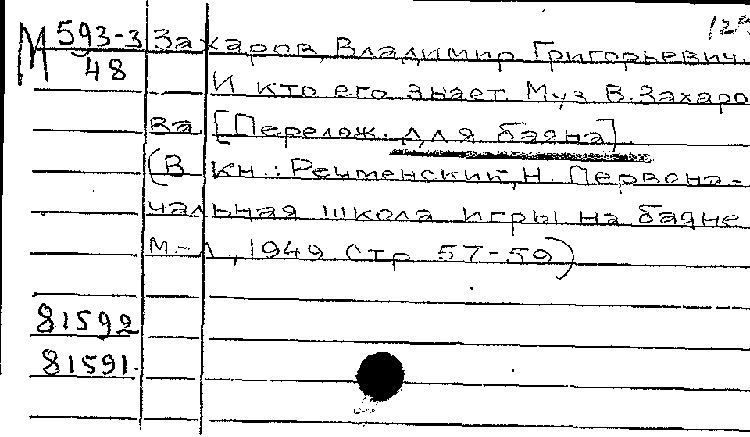 М 593-3 Захаров, Владимир Григорьевич.
48 И кто его знает. Муз. В. Захаро
ва [Перелож. для баяна].
(В кн.: Речменский, Н. Первона-
чальная школа игры на баяне
М-Л, 1949 Стр 57-59)
81592
81591.